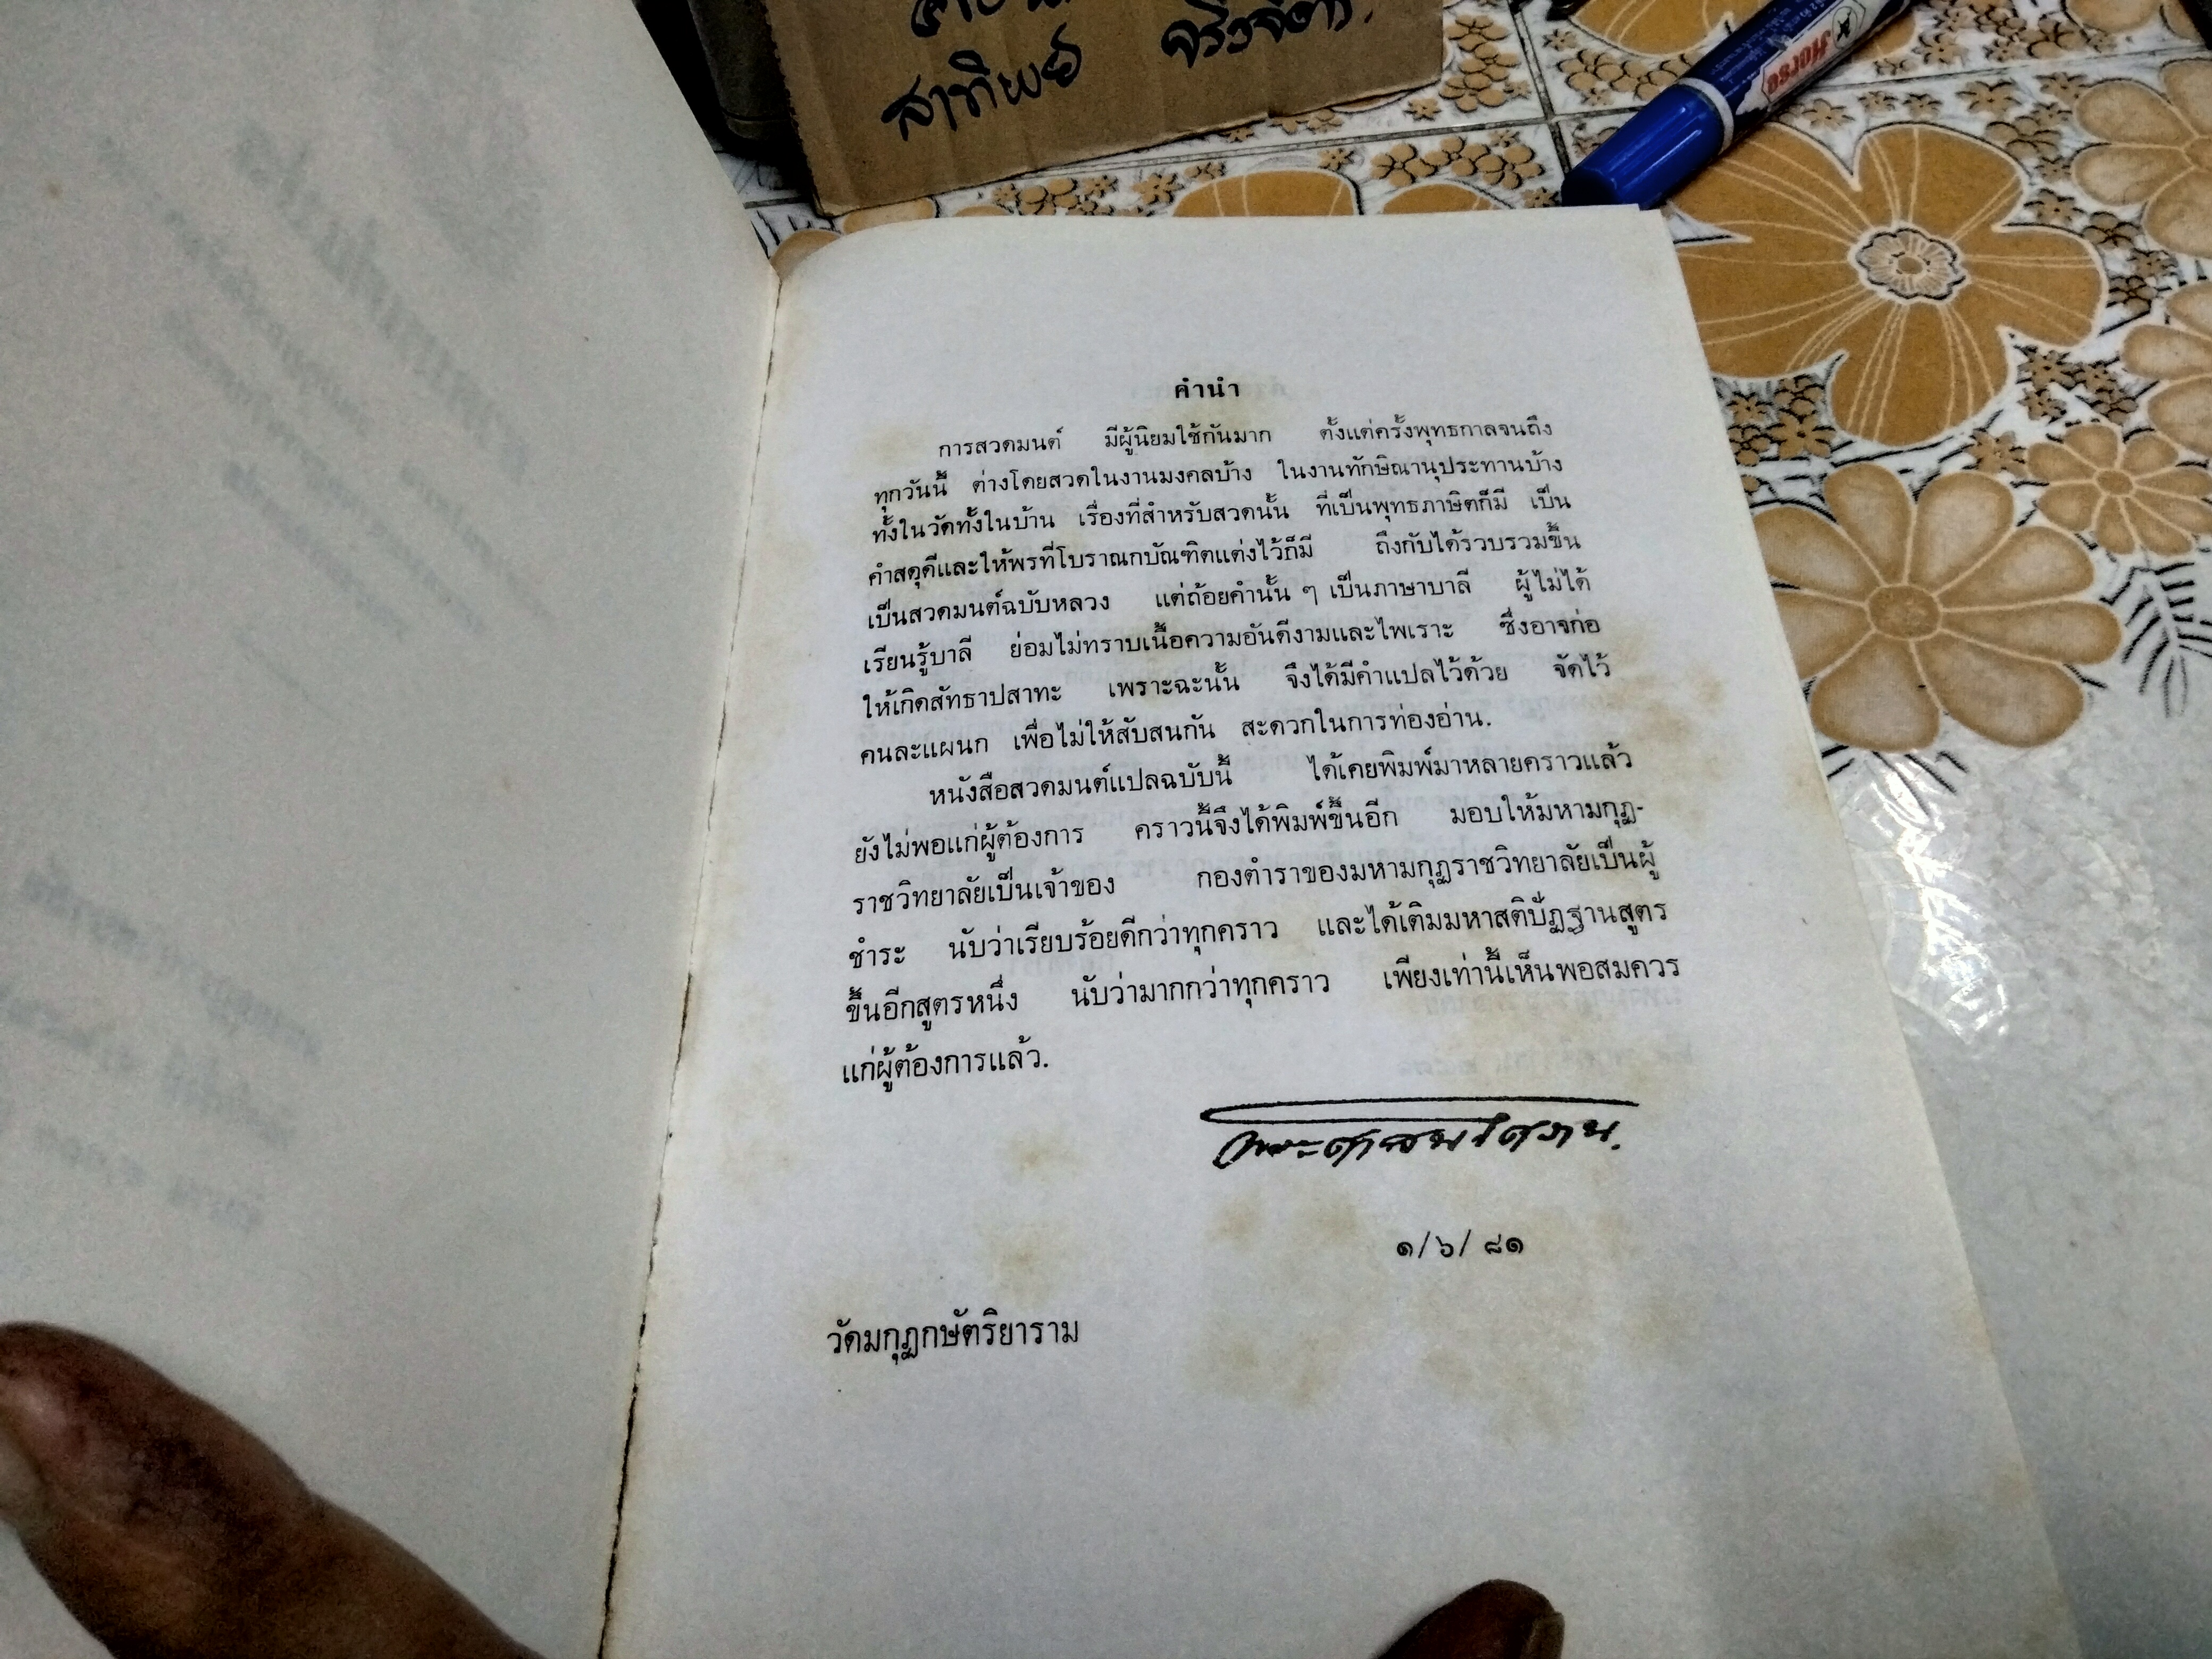 สาทิพย์
Horse
คำนำ
การสวดมนต์ มีผู้นิยมใช้กันมาก ตั้งแต่ครั้งพุทธกาลจนถึง
ทุกวันนี้ ต่างโดยสวดในงานมงคลบ้าง ในงานทักษิณานุประทานบ้าง
ทั้งในวัดทั้งในบ้าน เรื่องที่สำหรับสวดนั้น ที่เป็นพุทธภาษิตก็มี เป็น
คำสดุดีและให้พรที่โบราณกบัณฑิตแต่งไว้ก็มี ถึงกับได้รวบรวมขึ้น
เป็นสวดมนต์ฉบับหลวง แต่ถ้อยคำนั้น ๆ เป็นภาษาบาลี ผู้ไม่ได้
เรียนรู้บาลี ย่อมไม่ทราบเนื้อความอันดีงามและไพเราะ ซึ่งอาจก่อ
ให้เกิดสัทธาปสาทะ เพราะฉะนั้น จึงได้มีคำแปลไว้ด้วย จัดไว้
คนละแผนก เพื่อไม่ให้สับสนกัน สะดวกในการท่องอ่าน.
หนังสือสวดมนต์แปลฉบับนี้ ได้เคยพิมพ์มาหลายคราวแล้ว
ยังไม่พอแก่ผู้ต้องการ คราวนี้จึงได้พิมพ์ขึ้นอีก มอบให้มหามกุฏ-
ราชวิทยาลัยเป็นเจ้าของ กองตำราของมหามกุฏราชวิทยาลัยเป็นผู้
ชำระ นับว่าเรียบร้อยดีกว่าทุกคราว และได้เติมมหาสติปัฏฐานสูตร
ขึ้นอีกสูตรหนึ่ง นับว่ามากกว่าทุกคราว เพียงเท่านี้เห็นพอสมควร
แก่ผู้ต้องการแล้ว.
พระศาสนโศภน.
๑/๖/๘๑
วัดมกุฏกษัตริยาราม